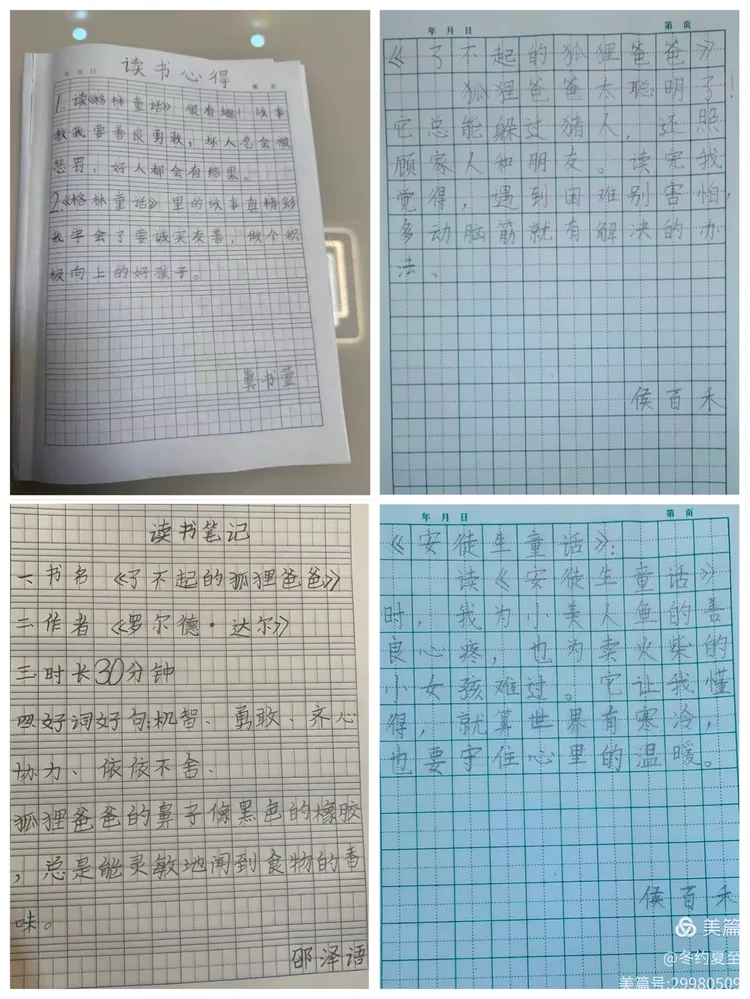 年 月 日
读书心得
第 页
1. 读《格林童话》很有趣！故事
教我要善良勇敢，坏人总会被
惩罚，好人都会有结果。
2.《格林童话》里的故事真精彩
我学会了要诚实友善，做个积
极向上的好孩子。
书萱
年 月 日
第 页
《了不起的狐狸爸爸》
狐狸爸爸太聪明了！
它总能躲过猎人，还照
顾家人和朋友。读完我
觉得，遇到困难别害怕，
多动脑筋就有解决的办
法。
侯百禾
读书笔记
一.书名《了不起的狐狸爸爸》
二.作者《罗尔德·达尔》
三.时长30分钟
四.好词好句：机智、勇敢、齐心
协力、依依不舍、
狐狸爸爸的鼻子像黑色的橡胶
，总是能灵敏地闻到食物的香
味。
邵泽语
年 月 日
第 页
《安徒生童话》：
读《安徒生童话》
时，我为小美人鱼的善
良心疼，也为卖火柴的
小女孩难过。它让我懂
得，就算世界有寒冷，
也要守住心里的温暖。
侯百禾
美篇
@冬约夏至
美篇号:29980509